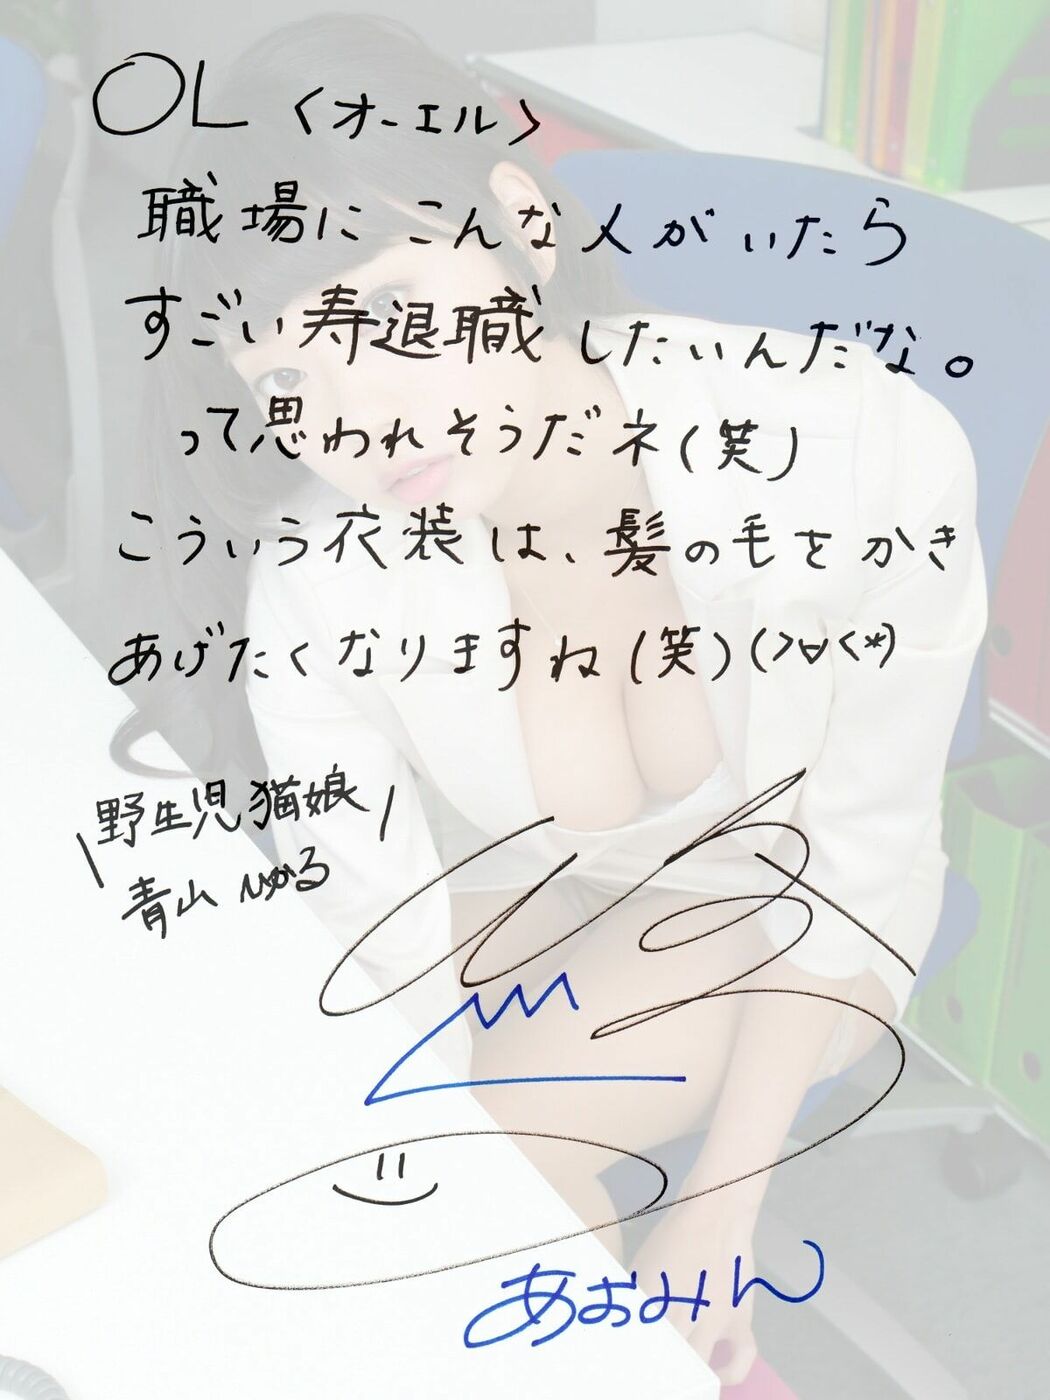 OL <オーエル>
職場にこんな人がいたら
すごい寿退職したいんだな。
って思われそうだネ(笑)
こういう衣装は、髪の毛をかき
あげたくなりますね(笑)(>∀<*)
\野生児猫娘/
青山ひかる
あおみん